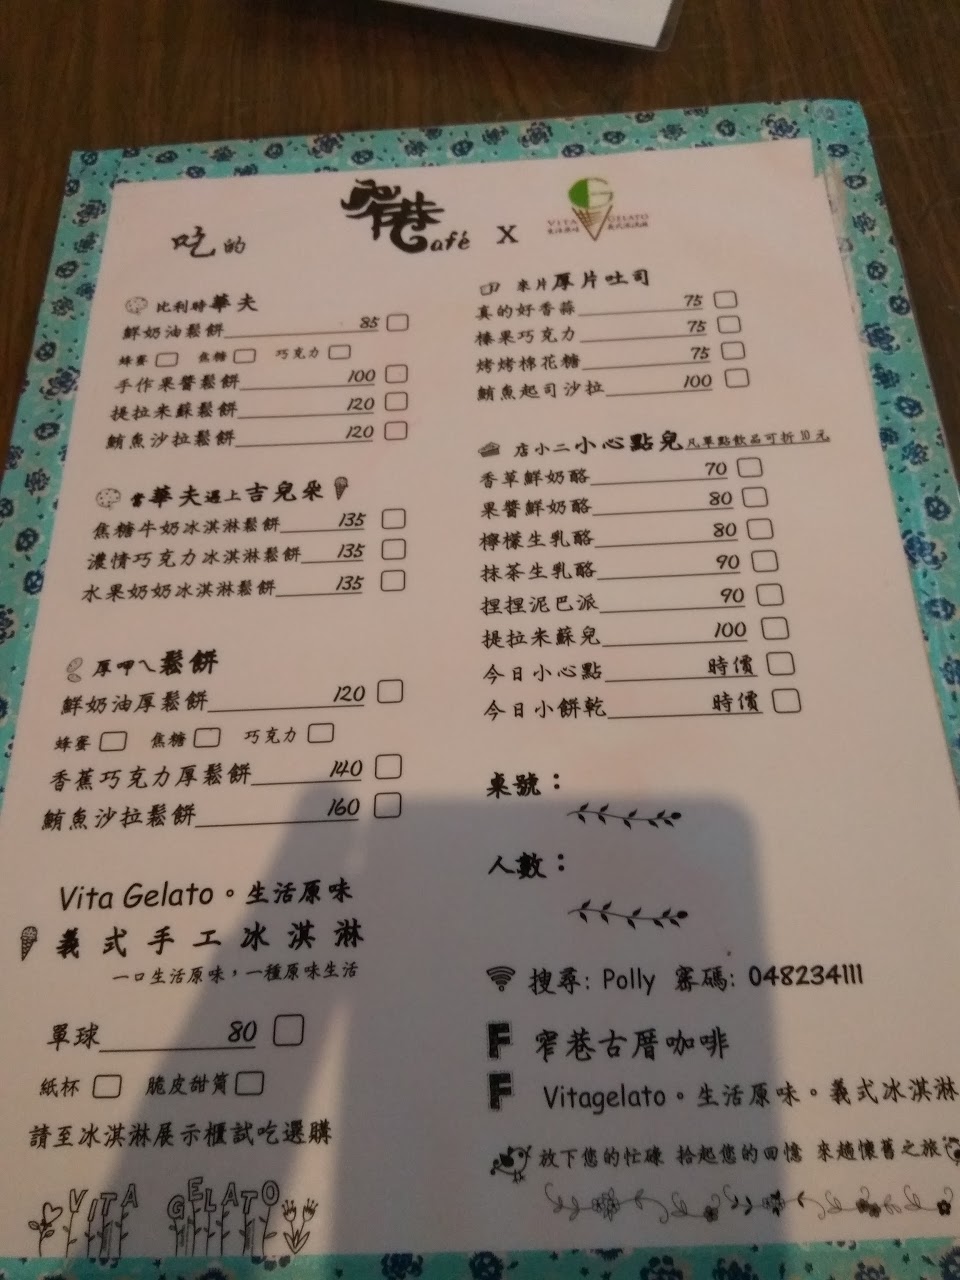 吃的
窄巷Café X VITA GELATO
生活原味 義式冰淇淋
比利時華夫
鮮奶油鬆餅 85
蜂蜜 焦糖 巧克力
手作果醬鬆餅 100
提拉米蘇鬆餅 120
鮪魚沙拉鬆餅 120
當華夫遇上吉兒朵
焦糖牛奶冰淇淋鬆餅 135
濃情巧克力冰淇淋鬆餅 135
水果奶奶冰淇淋鬆餅 135
厚呷ㄟ鬆餅
鮮奶油厚鬆餅 120
蜂蜜 焦糖 巧克力
香蕉巧克力厚鬆餅 140
鮪魚沙拉鬆餅 160
Vita Gelato。生活原味
義式手工冰淇淋
一口生活原味，一種原味生活
單球 80
紙杯 脆皮甜筒
請至冰淇淋展示櫃試吃選購
VITA GELATO
來片厚片吐司
真的好香蒜 75
榛果巧克力 75
烤烤棉花糖 75
鮪魚起司沙拉 100
店小二小心點兒凡單點飲品可折10元
香草鮮奶酪 70
果醬鮮奶酪 80
檸檬生乳酪 80
抹茶生乳酪 90
捏捏泥巴派 90
提拉米蘇兒 100
今日小心點 時價
今日小餅乾 時價
桌號：
人數：
搜尋: Polly 審碼: 048234111
F 窄巷古厝咖啡
F Vitagelato。生活原味。義式冰淇淋
放下您的忙碌 拾起您的回憶 來趟懷舊之旅